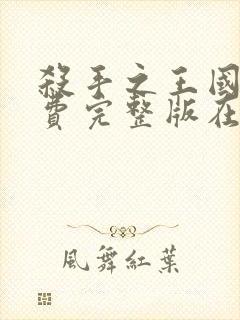 殺手之王國
費完整版在
風舞紅葉